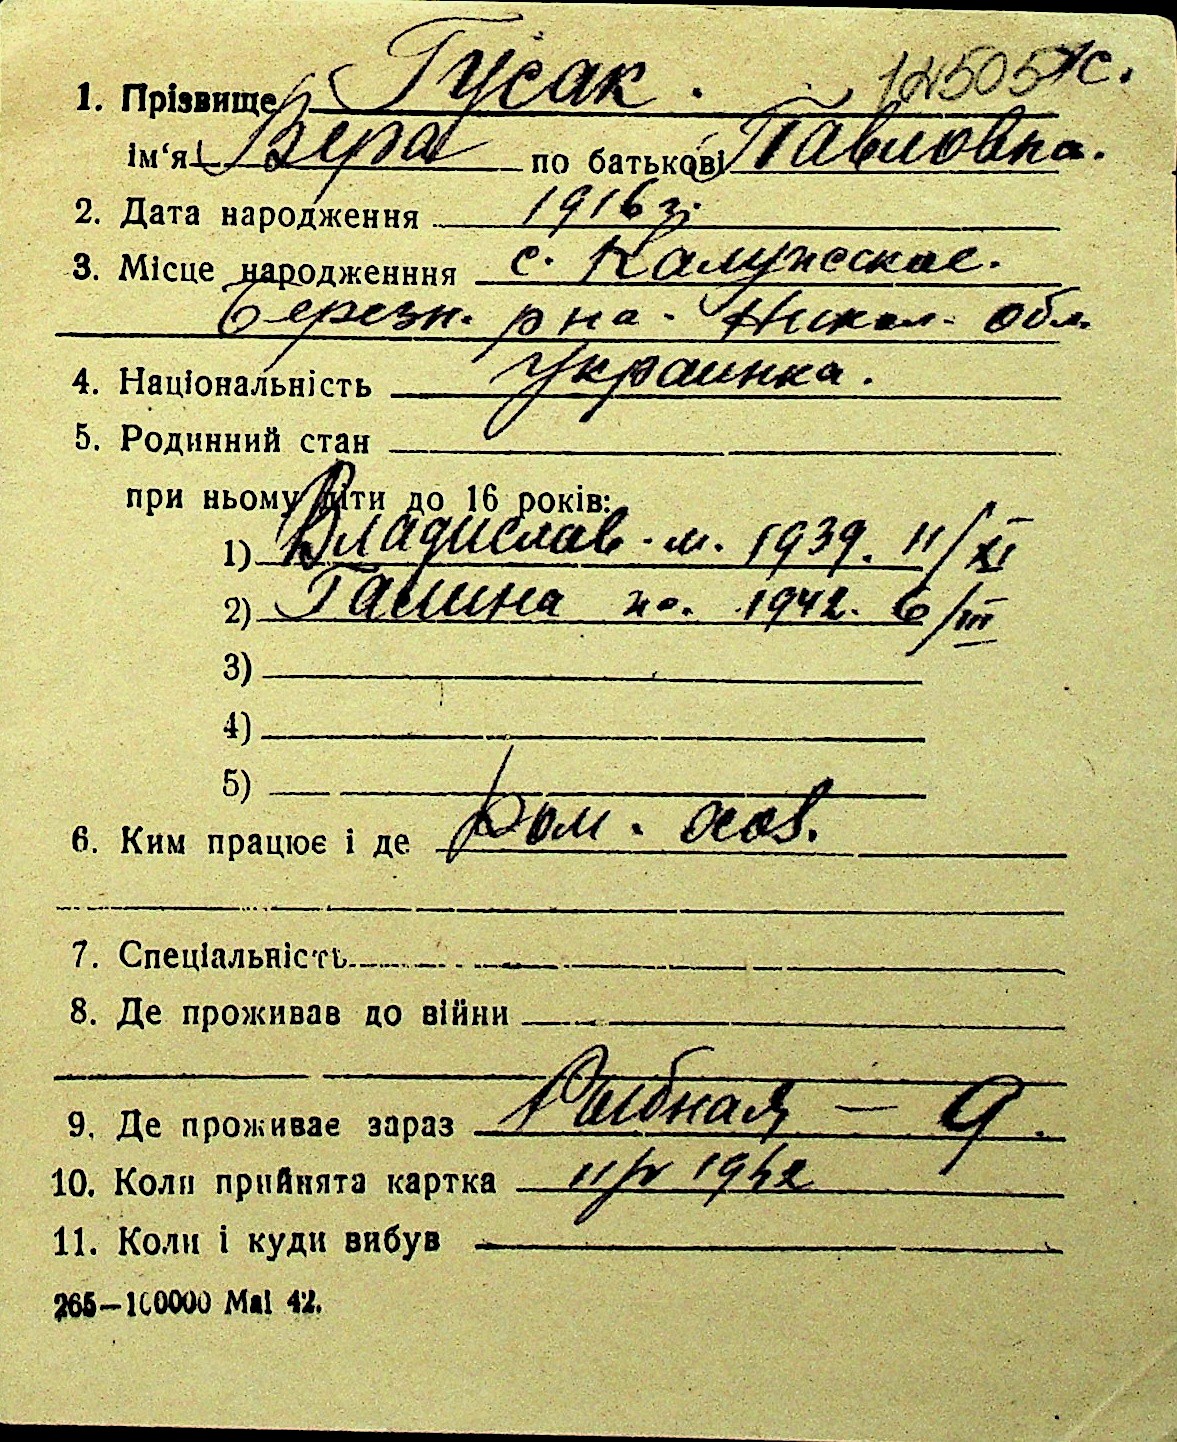 12505 ж.
1. Прізвище Гусак.
ім‘я Вера по батькові Павловна.
2. Дата народження 1916 г.
3. Місце народженння с. Калужское.
Березн. р на. Никол. обл.
4. Національність украинка.
5. Родинний стан
при ньому діти до 16 років:
1) Владислав. м. 1939. 11/XI
2) Галина ж. 1942. 6/III
3)
4)
5)
6. Ким працює і де Дом. хоз.
7. Спеціальність
8. Де проживав до війни
9. Де проживає зараз Рыбная — 9.
10. Коли прийнята картка 1942
11. Коли і куди вибув
265—100000 Маі 42.